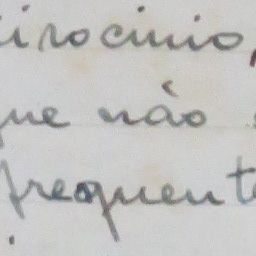 tirocinio,
que não
frequente